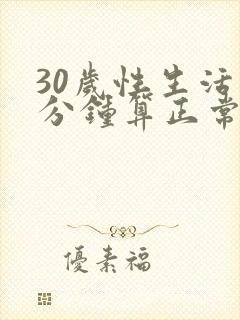 30歲性生活
分鐘算正常
優素福